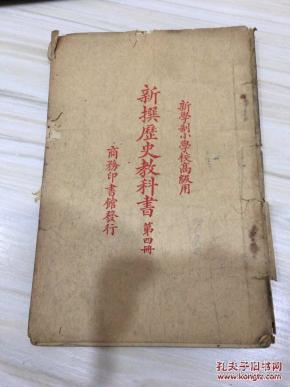 新學制小學校高級用
新撰歷史教科書 第四冊
商務印書館發行
孔夫子旧书网